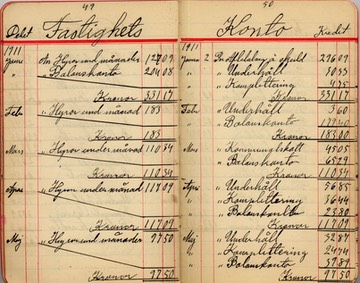 49
Debet Fastighets
1911
Janr An Hyror und månader 127 09
" " Balanskonto 204 08
Kronor 331 17
Feb " Hyror und månad 183
Kronor 183
Mars " Hyror under månad 110 34
Kronor 110 34
Apr " Hyror under månad 117 09
Kronor 117 09
Maj " Hyror und månader 97 50
Kronor 97 50
50
Konto Kredit
1911
Janr 2 Per Afbetaln å skuld 296 09
" " Underhåll 30 33
" " Komplittering
Kronor 331 17
Feb " Underhåll 3 60
" Balanskonto 179 40
Kronor 183 00
Mars " Kommunalskatt 45 05
" " Balanskonto 65 29
Kronor 110 34
Apr " Underhåll 56 85
" " Komplittering 36 44
" " Balanskonto 23 80
Kronor 117 09
Maj " Underhåll 32 87
" Komplittering 24 74
" Balanskonto 39 89
Kronor 97 50